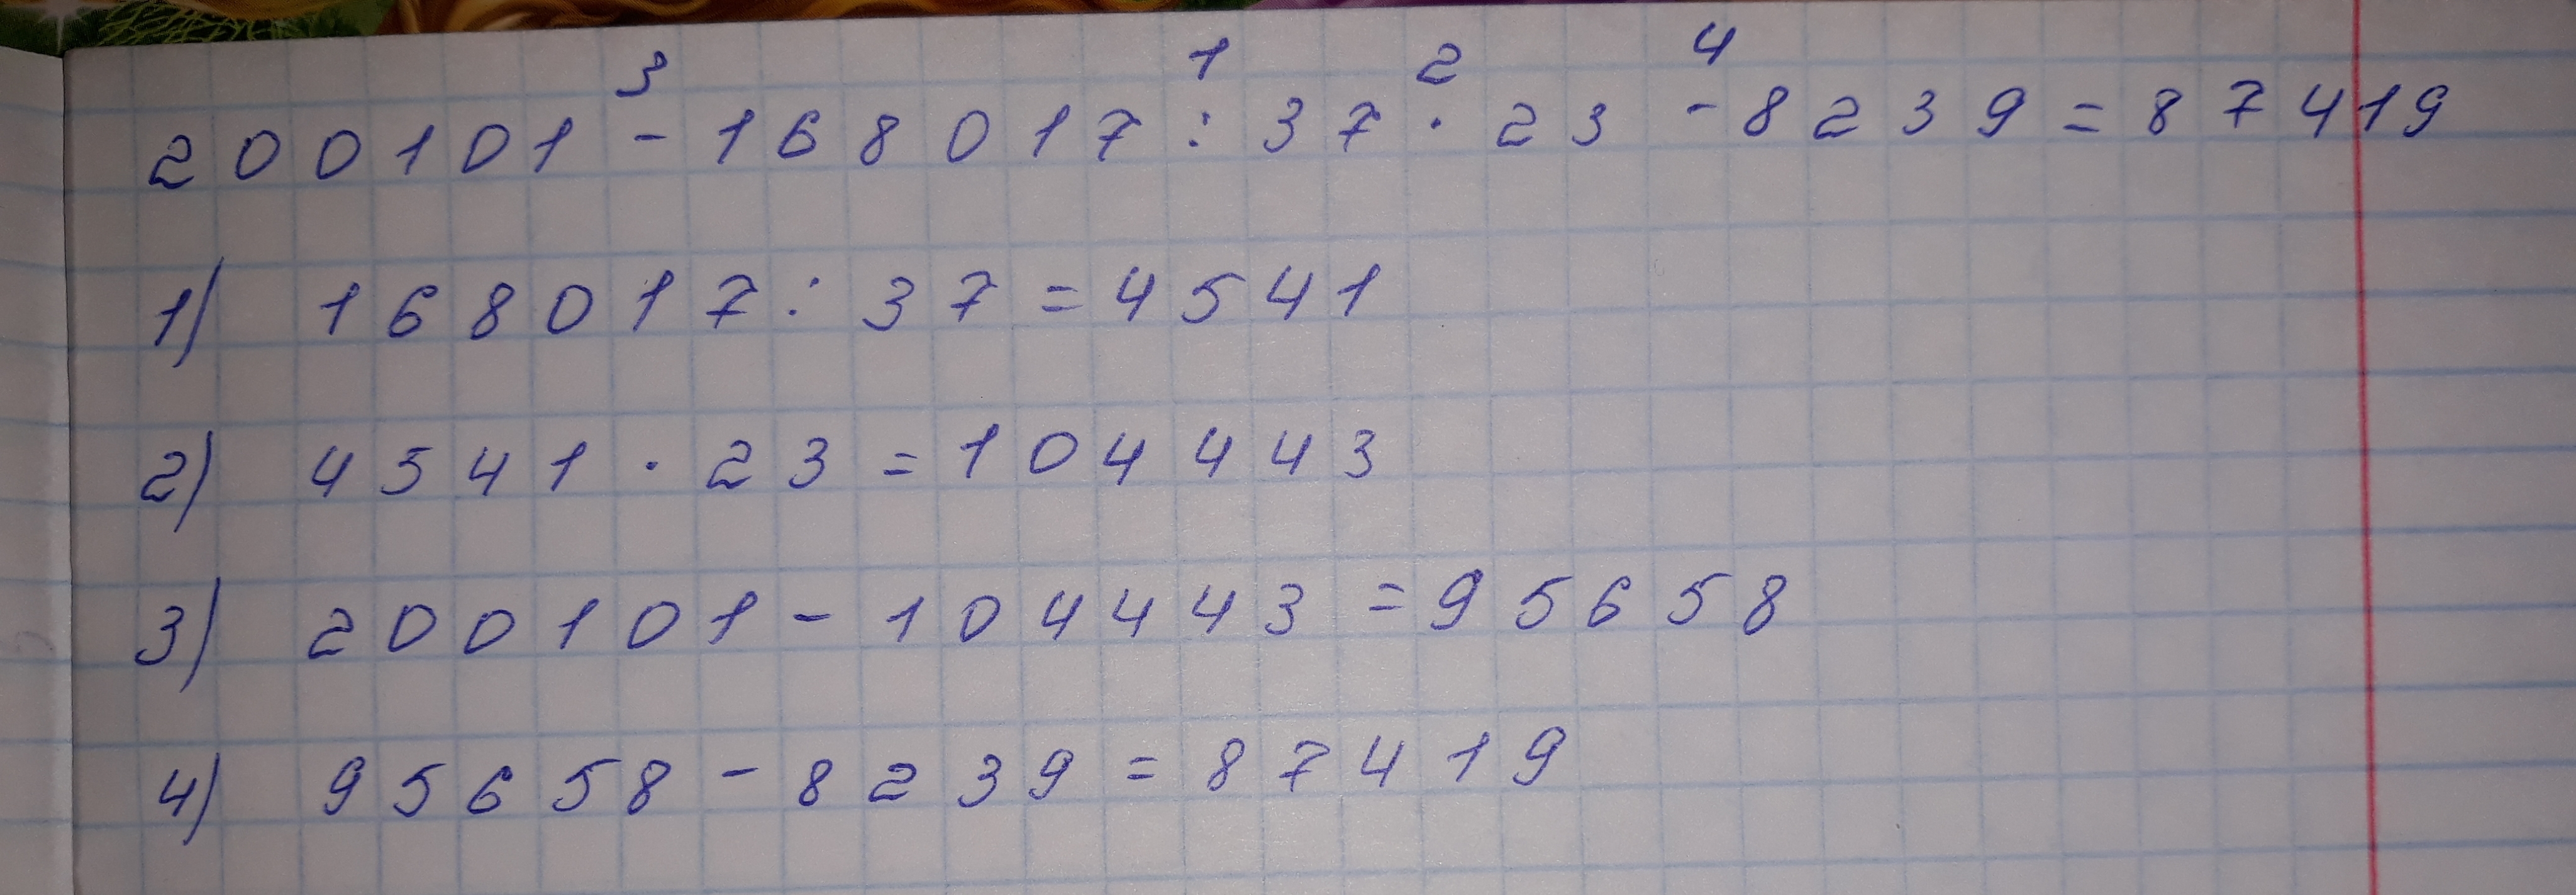 3 1 2 4
200101 - 168017 : 37 · 23 - 8239 = 87419
1) 168017 : 37 = 4541
2) 4541 · 23 = 104443
3) 200101 - 104443 = 95658
4) 95658 - 8239 = 87419